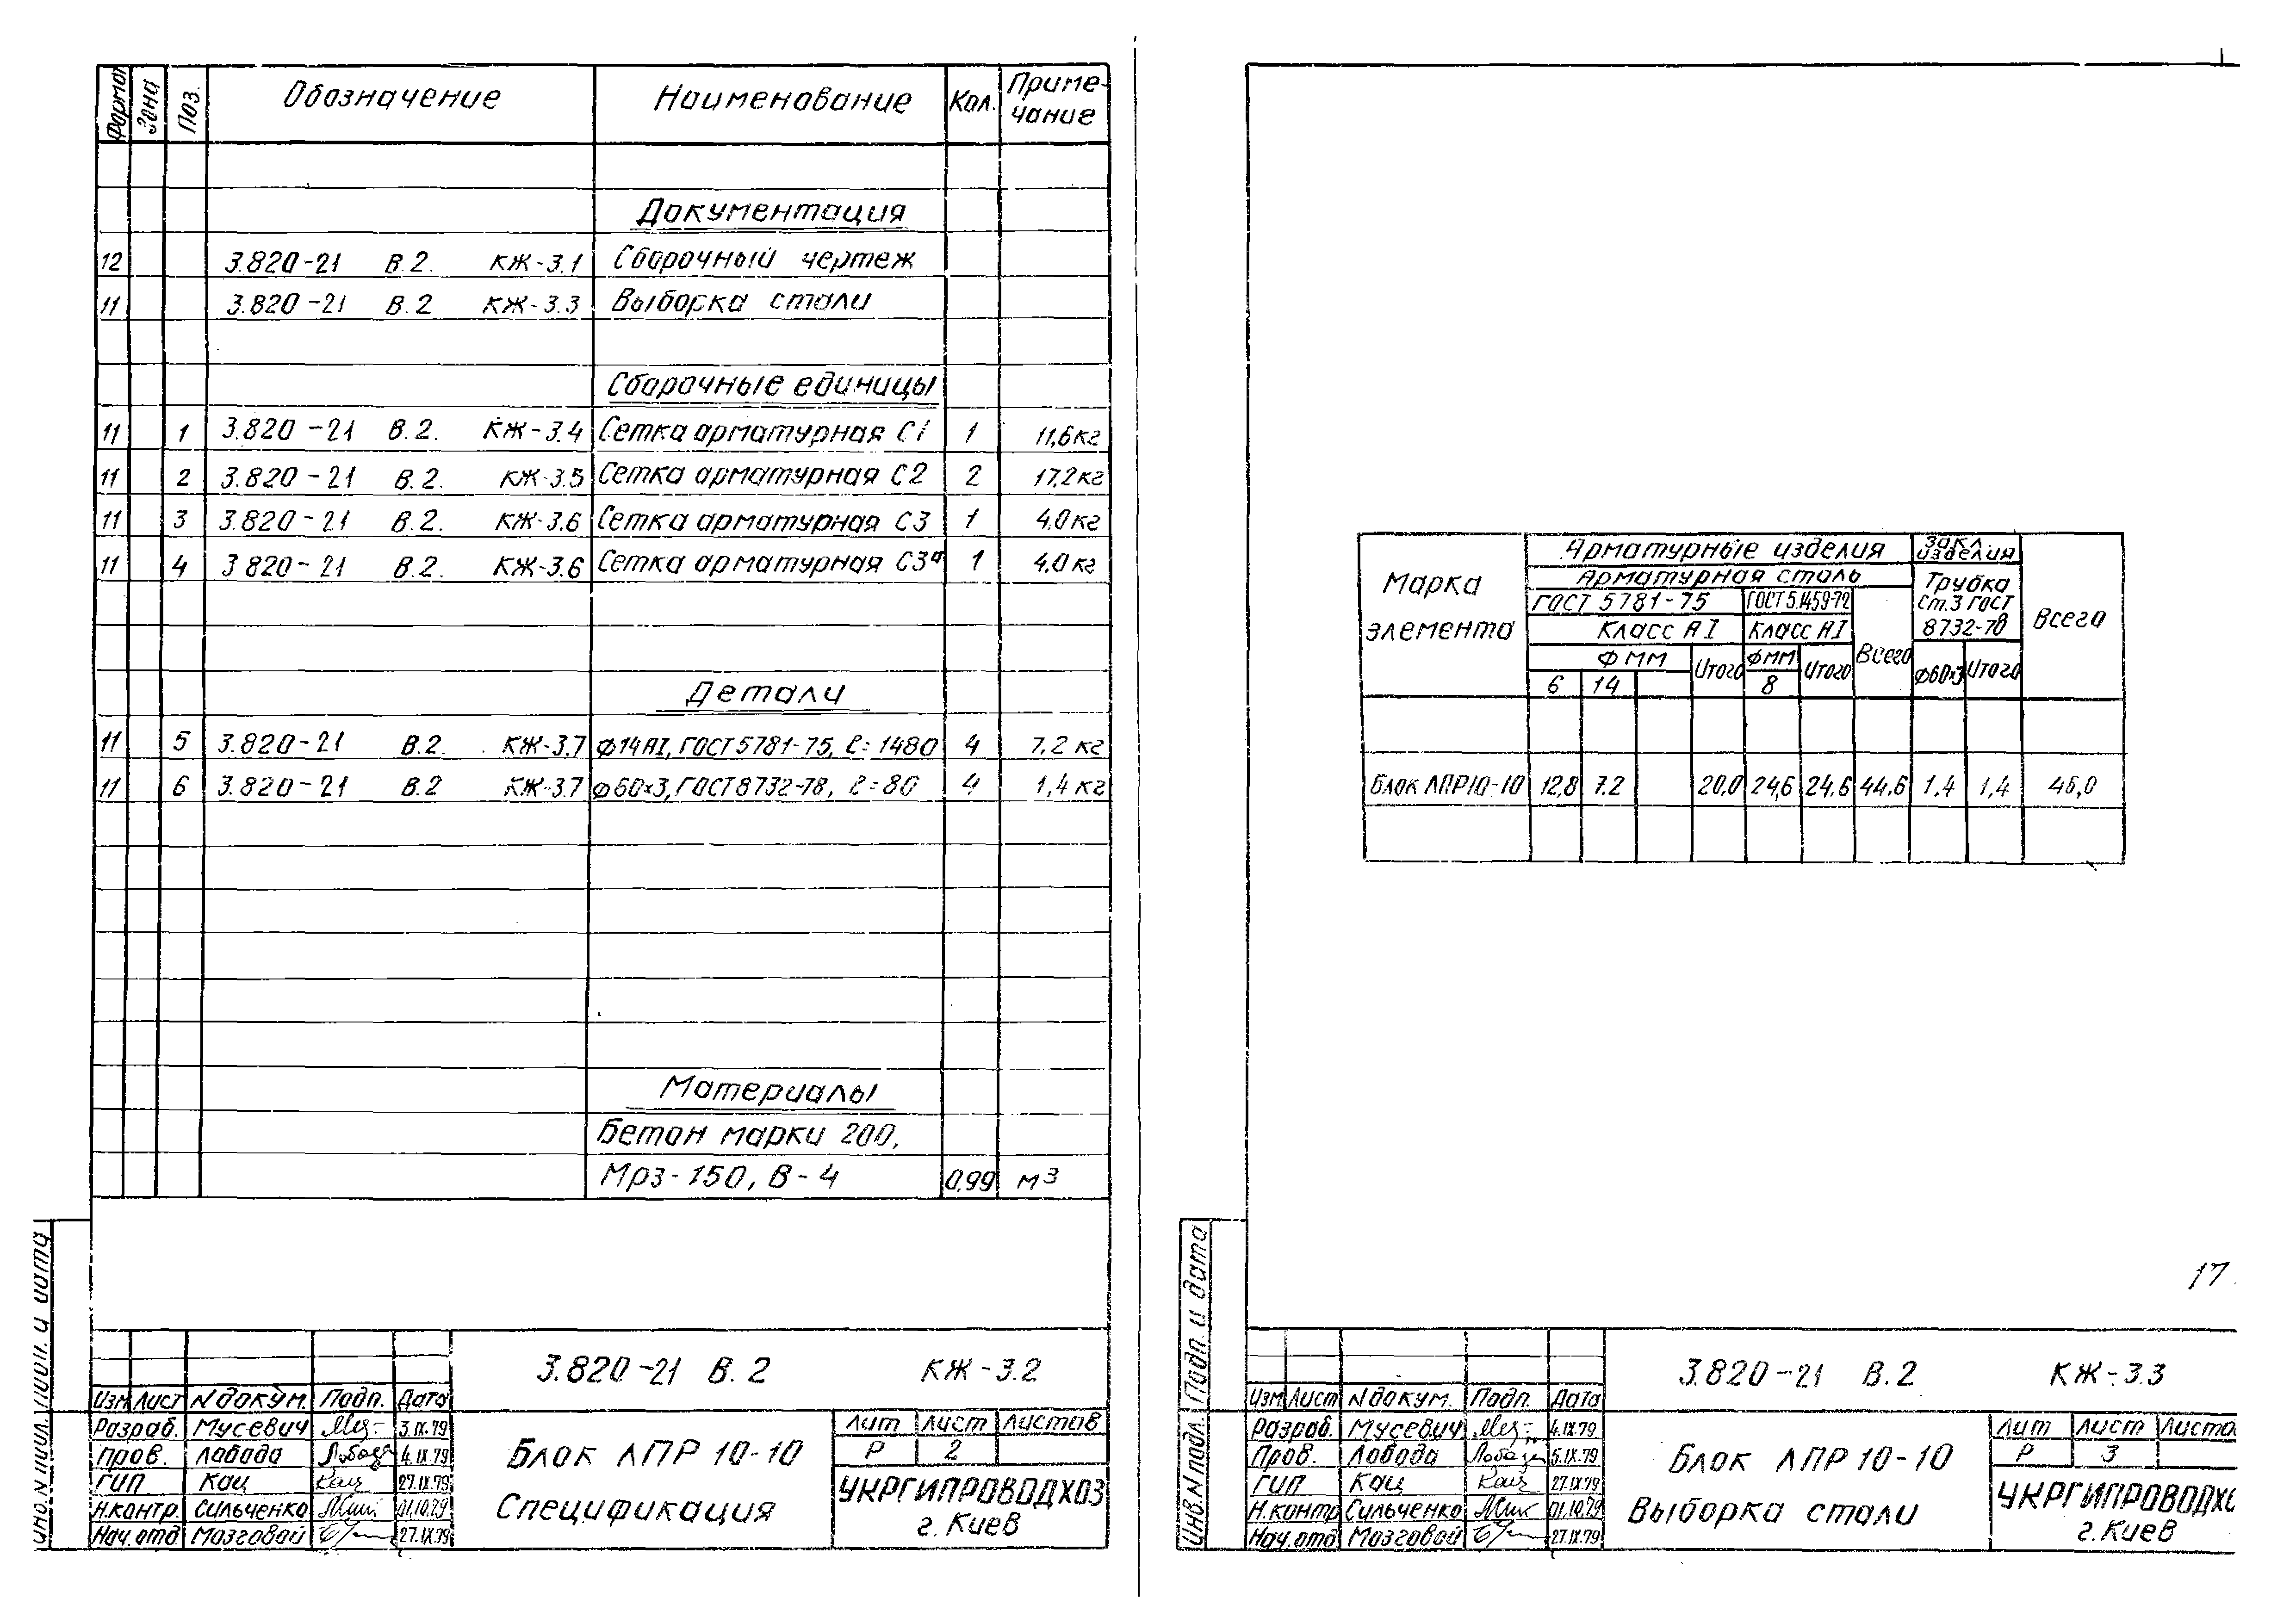 Формат Зона Поз. Обозначение Наименование Кол. Приме-
чание
Документация
12 3.820-21 В.2. КЖ-3.1 Сборочный чертеж
11 3.820-21 В.2 КЖ-3.3 Выборка стали
Сборочные единицы
11 1 3.820-21 В.2. КЖ-3.4 Сетка арматурная С1 1 11,6 кг
11 2 3.820-21 В.2. КЖ-3.5 Сетка арматурная С2 2 17,2 кг
11 3 3.820-21 В.2. КЖ-3.6 Сетка арматурная С3 1 4,0 кг
11 4 3 820-21 В.2. КЖ-3.6 Сетка арматурная С3а 1 4,0 кг
Детали
11 5 3.820-21 В.2. КЖ-3.7 ф14АI, ГОСТ 5781-75, ℓ=1480 4 7,2 кг
11 6 3.820-21 В.2 КЖ-3.7 ф60×3, ГОСТ 8732-78, ℓ=80 4 1,4 кг
Материалы
Бетон марки 200,
Мрз-150, В-4 0,99 м³
Инв.N подл. Подп. и дата
3.820-21 В.2 КЖ-3.2
Изм Лист N докум. Подп. Дата
Разраб. Мусевич 3.IX.79
Пров. Лобода Лобода 4.IX.79
ГИП Кац Кац 27.IX.79
Н.контр. Сильченко 01.10.79
Нач.отд. Мозговой 27.IX.79
Блок ЛПР 10-10
Спецификация
Лит Лист Листов
Р 2
УКРГИПРОВОДХОЗ
г. Киев
Марка
элемента
Арматурные изделия
Закл.
изделия
Всего
Арматурная сталь
Трубка
Ст.3 ГОСТ
8732-78
ГОСТ 5781-75 ГОСТ 5.1459-72 Всего
Класс АI Класс АI
ф мм Итого фмм Итого ф60×3 Итого
6 14 8
Блок ЛПР10-10 12,8 7.2 20,0 24,6 24,6 44,6 1,4 1,4 46,0
17
Инв.N подл. Подп. и дата
3.820-21 В.2 КЖ-3.3
Изм Лист N докум. Подп. Дата
Разраб. Мусевич 4.IX.79
Пров. Лобода Лобода 5.IX.79
ГИП Кац Кац 27.IX.79
Н.контр Сильченко 01.10.79
Нач.отд Мозговой 27.IX.79
Блок ЛПР 10-10
Выборка стали
Лит Лист Листо
Р 3
УКРГИПРОВОДХО
г. Киев